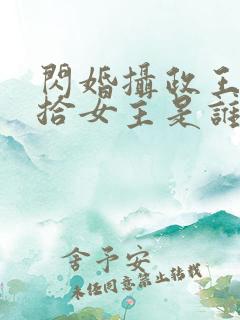 閃婚攝政王
拾女主是誰
舍予安
未任同意禁止轉載